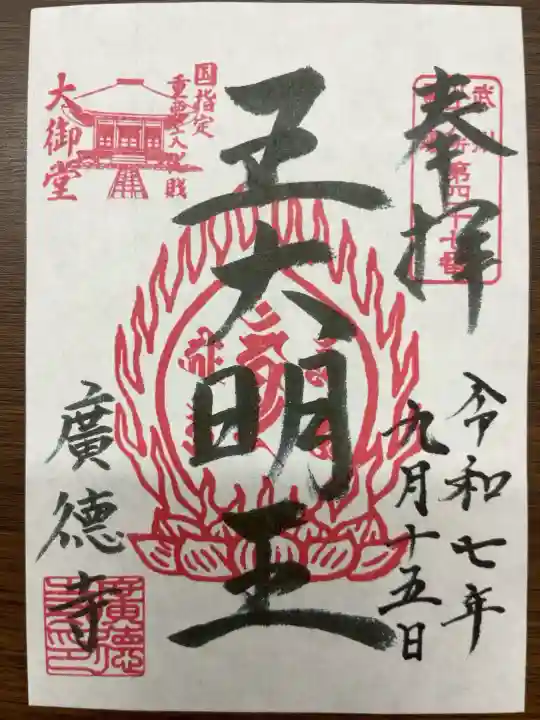 奉拝
武州
第四十七番
令和七年
九月十五日
五大明王
国指定
重要文化財
大御堂
廣徳寺